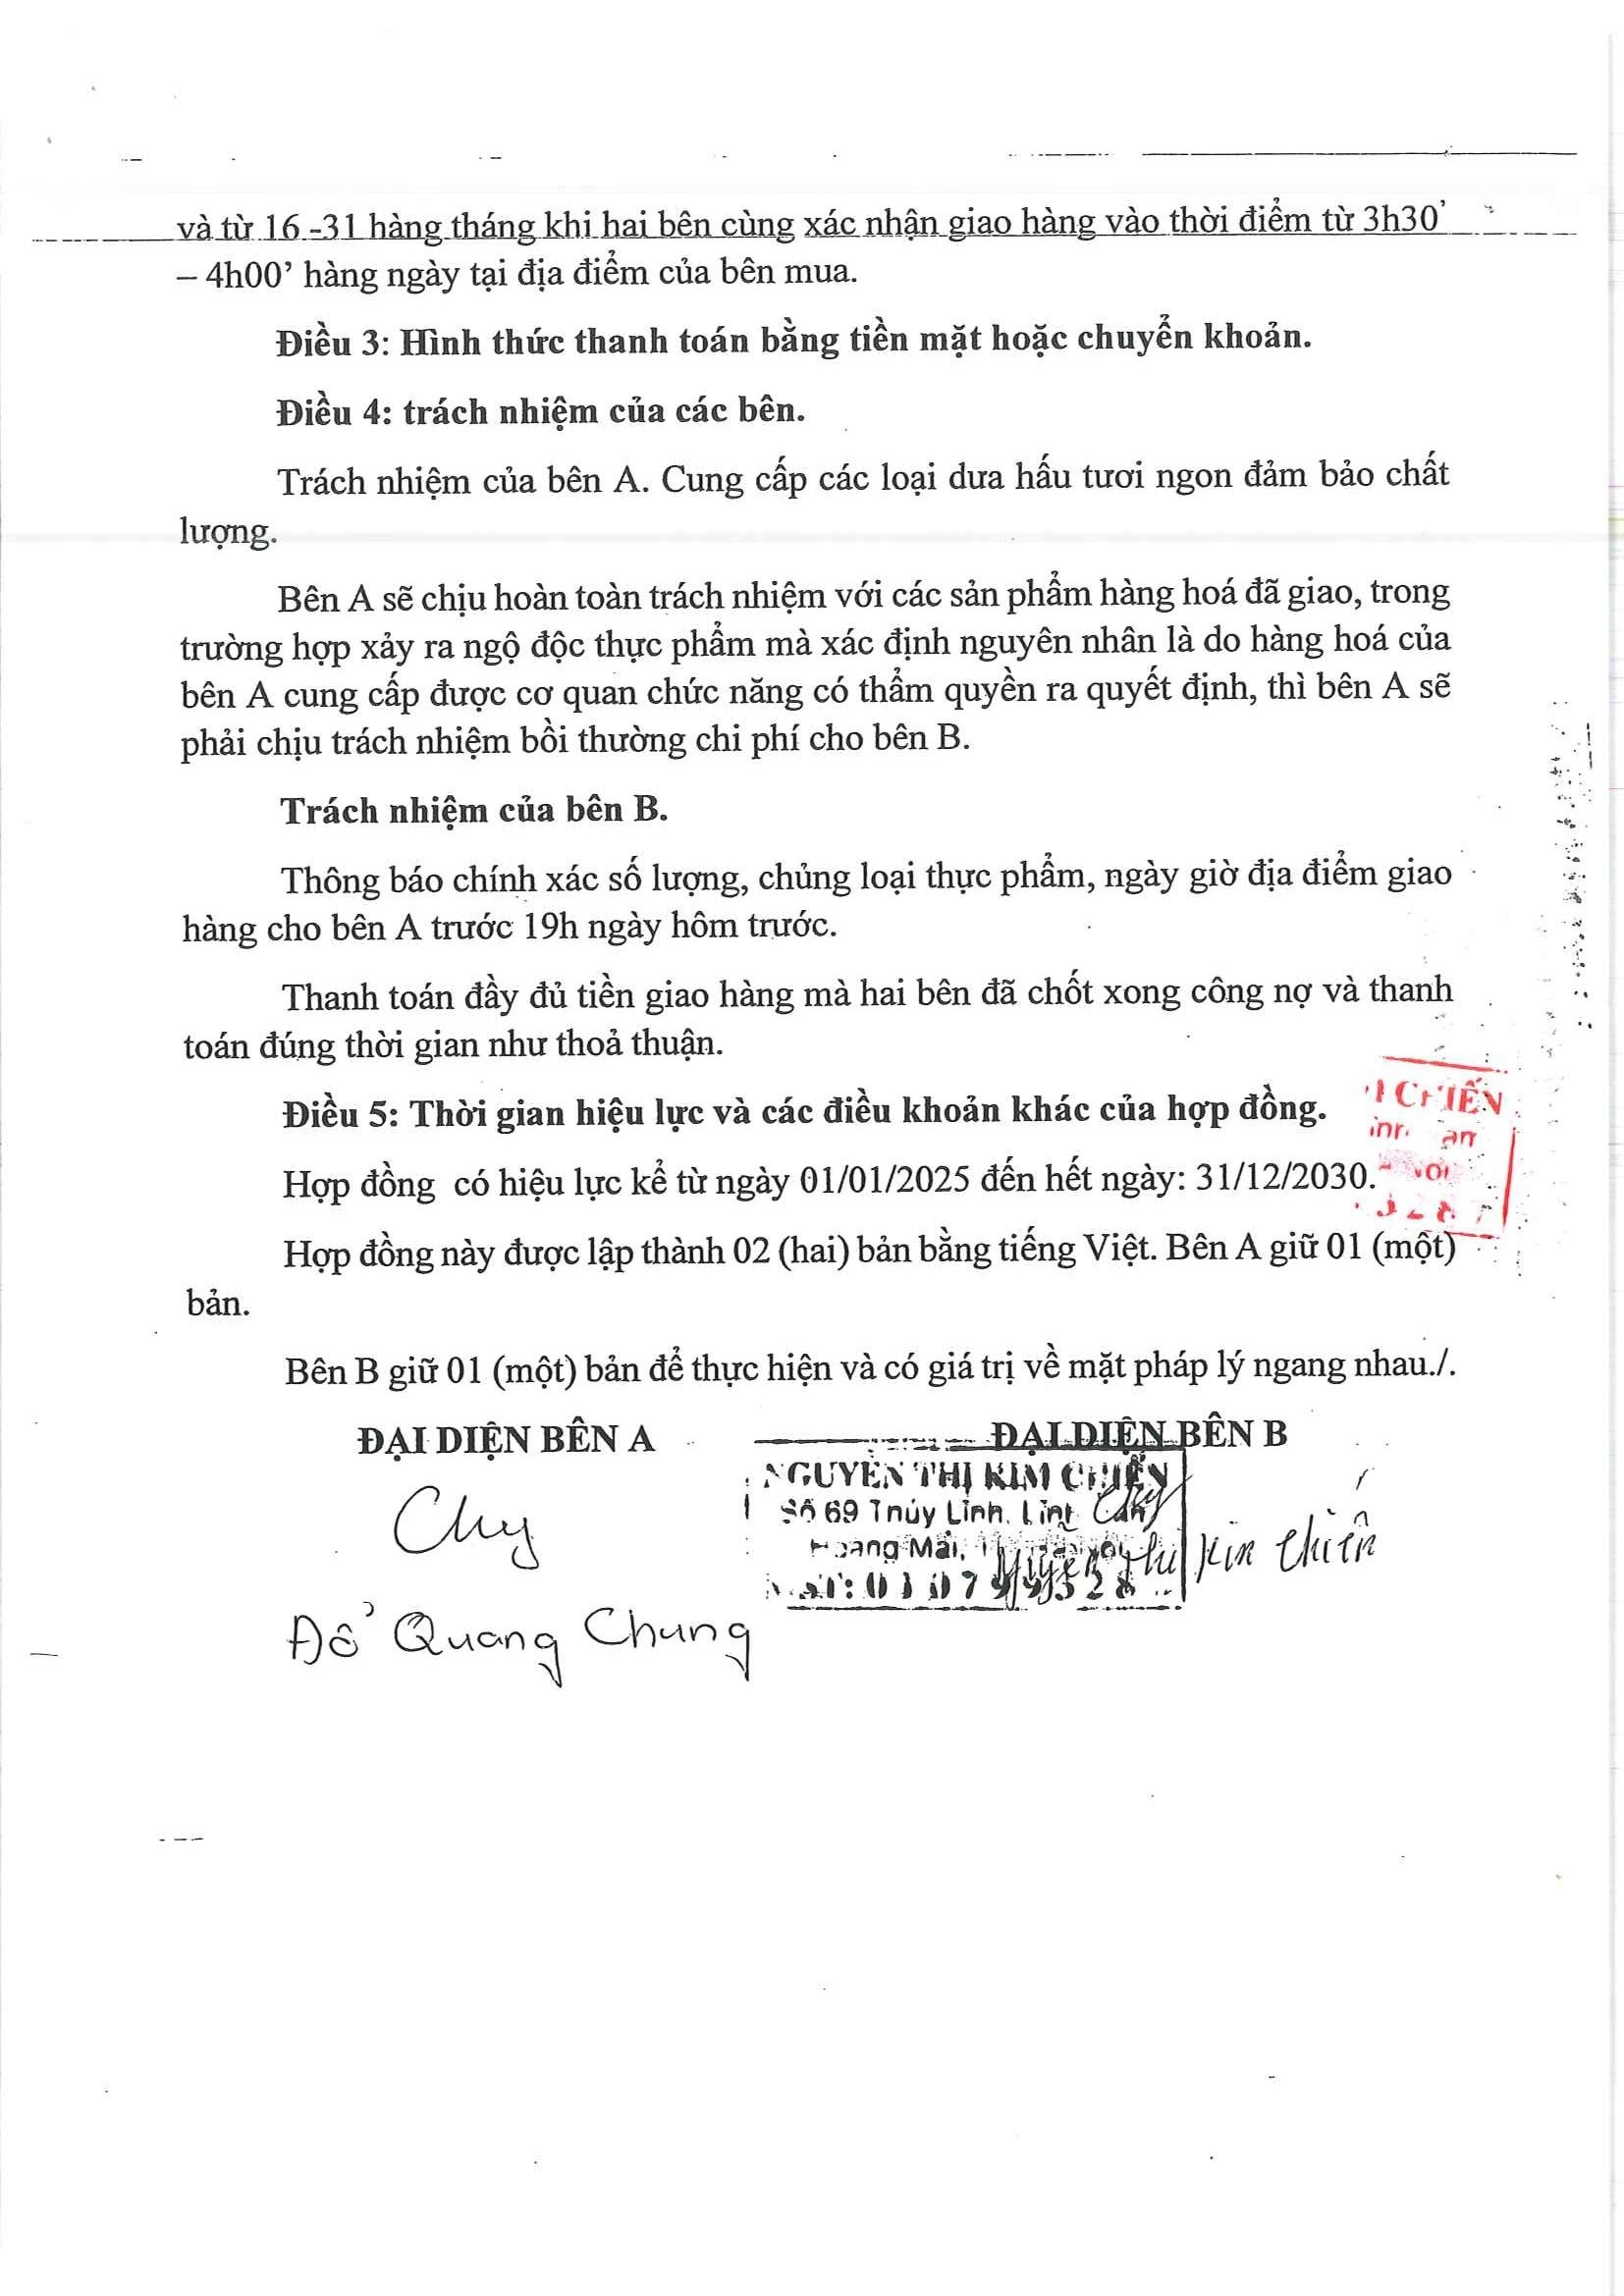 và từ 16 -31 hàng tháng khi hai bên cùng xác nhận giao hàng vào thời điểm từ 3h30’
– 4h00’ hàng ngày tại địa điểm của bên mua.
Điều 3: Hình thức thanh toán bằng tiền mặt hoặc chuyển khoản.
Điều 4: trách nhiệm của các bên.
Trách nhiệm của bên A. Cung cấp các loại dưa hấu tươi ngon đảm bảo chất
lượng.
Bên A sẽ chịu hoàn toàn trách nhiệm với các sản phẩm hàng hoá đã giao, trong
trường hợp xảy ra ngộ độc thực phẩm mà xác định nguyên nhân là do hàng hoá của
bên A cung cấp được cơ quan chức năng có thẩm quyền ra quyết định, thì bên A sẽ
phải chịu trách nhiệm bồi thường chi phí cho bên B.
Trách nhiệm của bên B.
Thông báo chính xác số lượng, chủng loại thực phẩm, ngày giờ địa điểm giao
hàng cho bên A trước 19h ngày hôm trước.
Thanh toán đầy đủ tiền giao hàng mà hai bên đã chốt xong công nợ và thanh
toán đúng thời gian như thoả thuận.
Điều 5: Thời gian hiệu lực và các điều khoản khác của hợp đồng.
CHIẾN
Hợp đồng có hiệu lực kể từ ngày 01/01/2025 đến hết ngày: 31/12/2030.
Hợp đồng này được lập thành 02 (hai) bản bằng tiếng Việt. Bên A giữ 01 (một)
bản.
Bên B giữ 01 (một) bản để thực hiện và có giá trị về mặt pháp lý ngang nhau./.
ĐẠI DIỆN BÊN A ĐẠI DIỆN BÊN B
NGUYỄN THỊ KIM CHIẾN
Số 69 Thúy Lĩnh, Lĩnh
Hoàng Mai,
Nguyễn Thị Kim Chiến
Đỗ Quang Chung